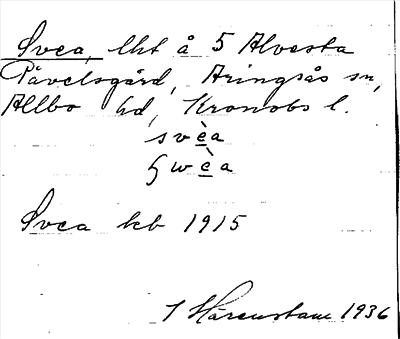 Svea, lht å 5 Alvesta
Påvelsgård, Aringsås sn,
Allbo hd, Kronobs l.
svèa
Svea kb 1915
I Hårenstam 1936